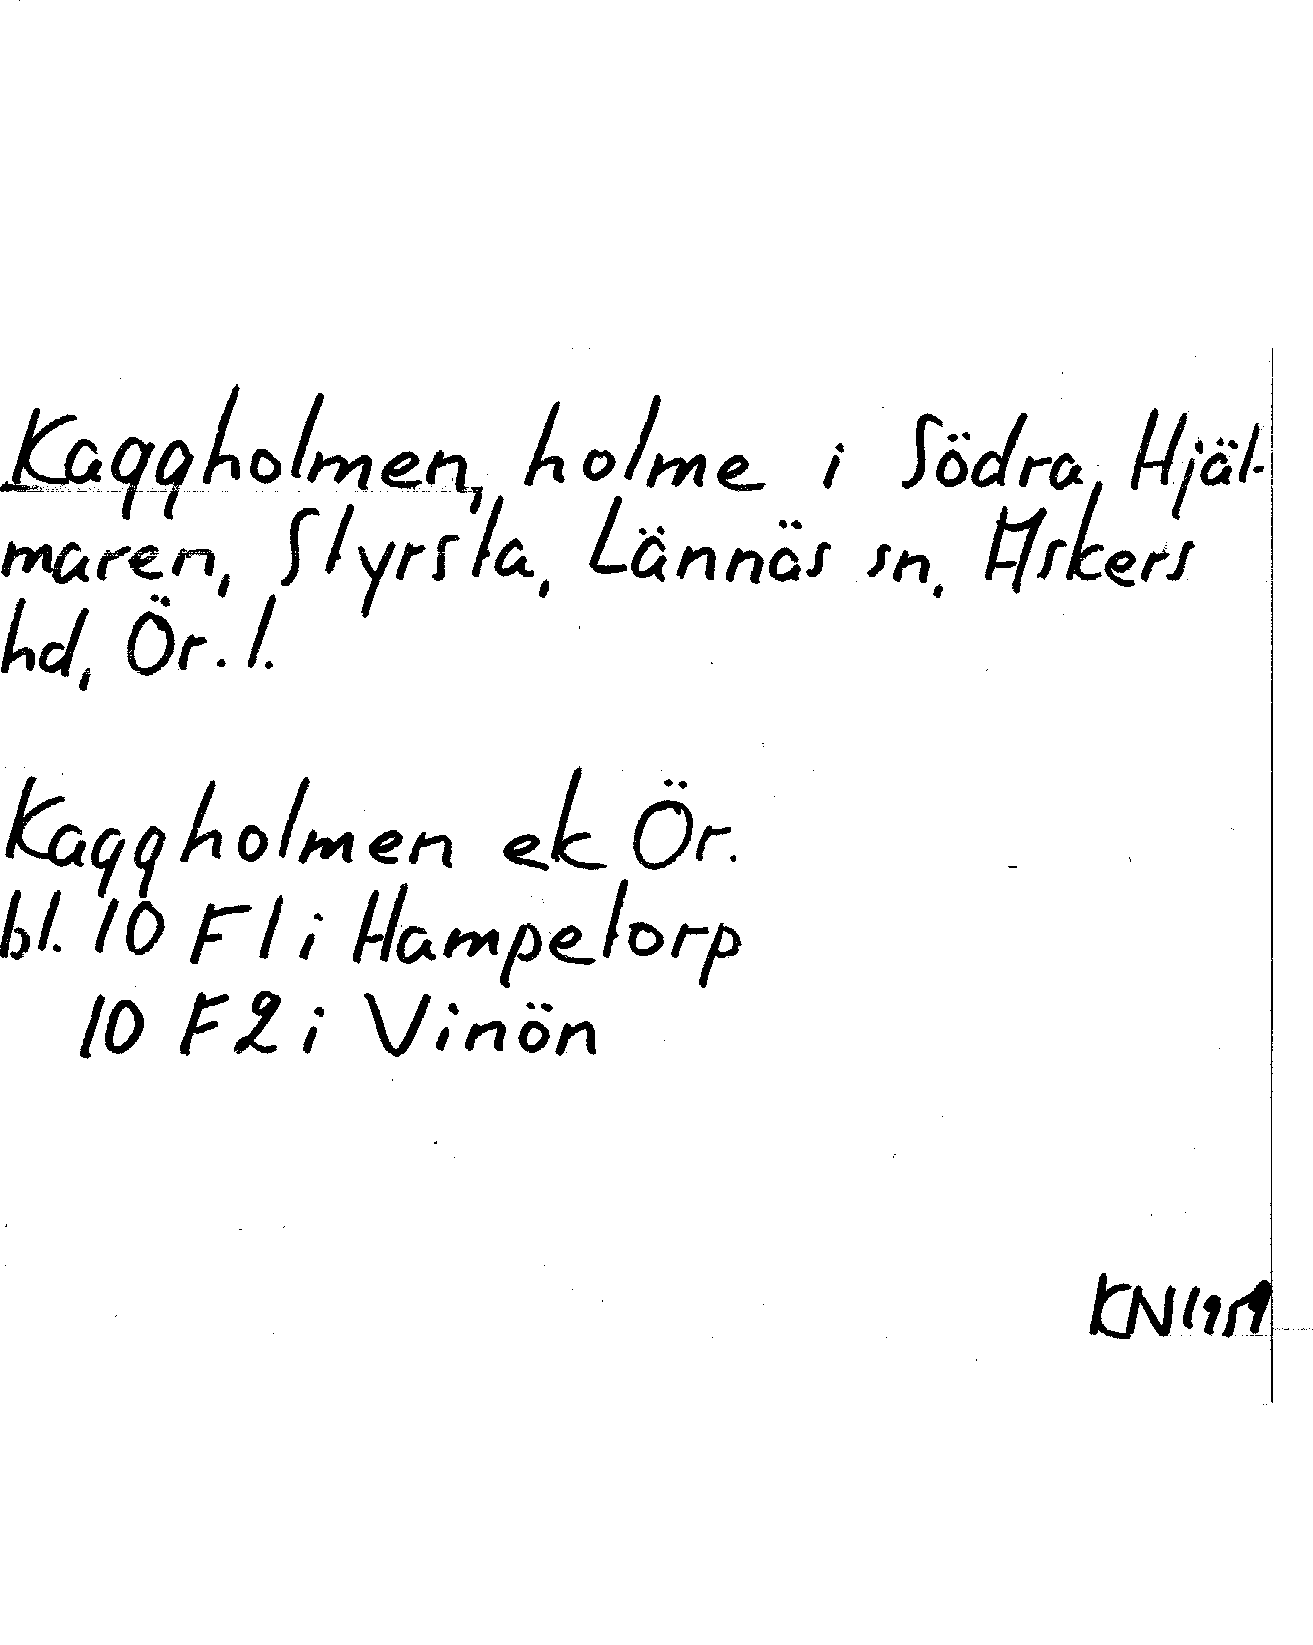 Kaggholmen, holme i Södra Hjäl-
maren, Styrsta, Lännäs sn, Askers
hd, Ör. l.
Kaggholmen ek Ör.
bl. 10 F 1 i Hampetorp
10 F 2 i Vinön
KN 1959